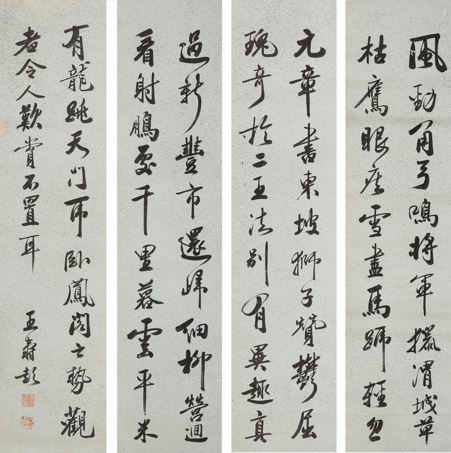 風勁角弓鳴將軍獵渭城草
枯鷹眼疾雪盡馬蹄輕忽
元章書東坡獅子贊鬱屈
瑰奇於二王法別有異趣真
過新豐市還歸細柳營迴
看射鵰處千里暮雲平米
有龍跳天門虎臥鳳閣之勢觀
者令人歎賞不置耳
王壽彭